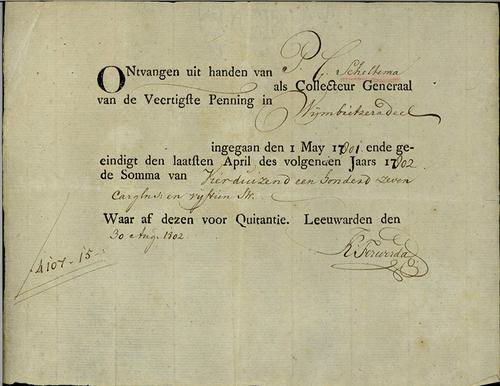 Ontvangen uit handen van P. C. Scheltema
als Collecteur Generaal
van de Veertigste Penning in Wymbritzeradeel
ingegaan den 1 May 1801 ende ge-
eindigt den laatsten April des volgenden Jaars 1802
de Somma van Vierduizend een honderd zeven
Cargls: en vyftien St.
Waar af dezen voor Quitantie. Leeuwarden den
30 Aug. 1802
4107-15-